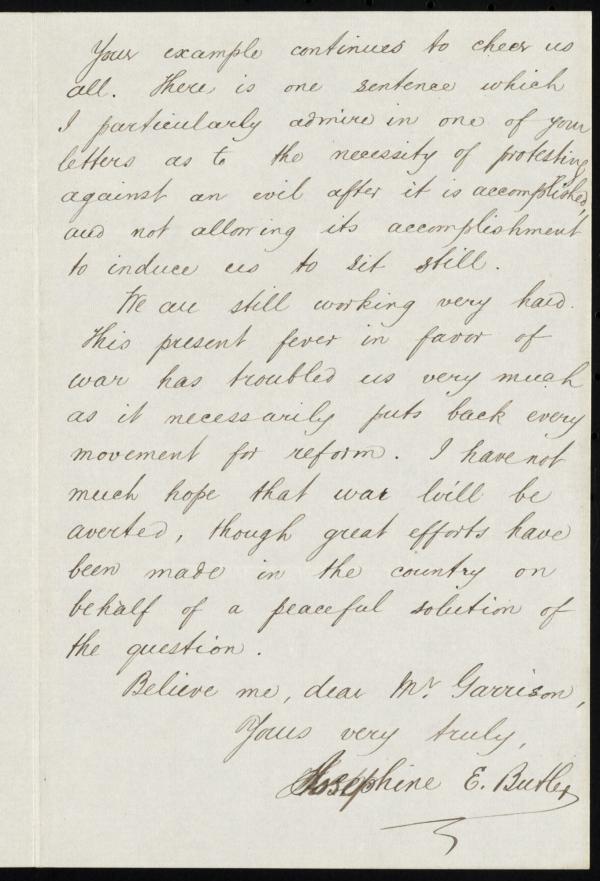 Your example continues to cheer us
all. There is one sentence which
I particularly admire in one of your
letters as to the necessity of protesting
against an evil after it is accomplished,
and not allowing its accomplishment
to induce us to sit still.
We are still working very hard.
This present fever in favor of
war has troubled us very much
as it necessarily puts back every
movement for reform. I have not
much hope that war will be
averted, though great efforts have
been made in the country on
behalf of a peaceful solution of
the question.
Believe me, dear Mr Garrison,
Yours very truly,
Josephine E. Butler